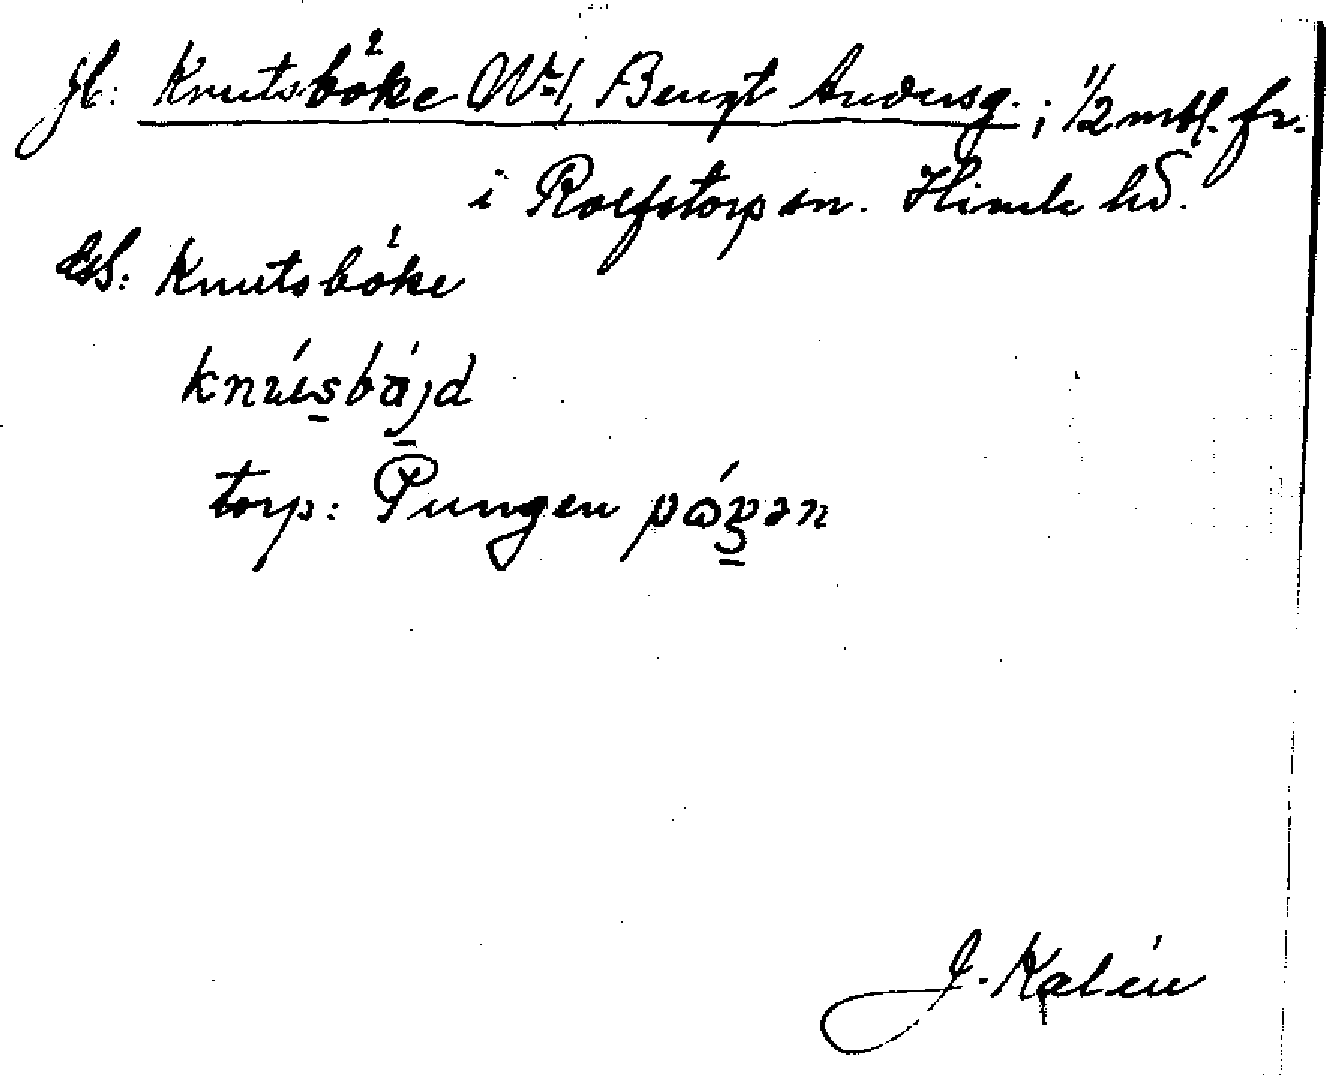 jb: Knutsböke Nr 1, Bengt Andersg.; 1/2 mtl. fr.
i Rolfstorp sn. Himle hd.
Knutsböke
torp: Pungen
J. Kalén